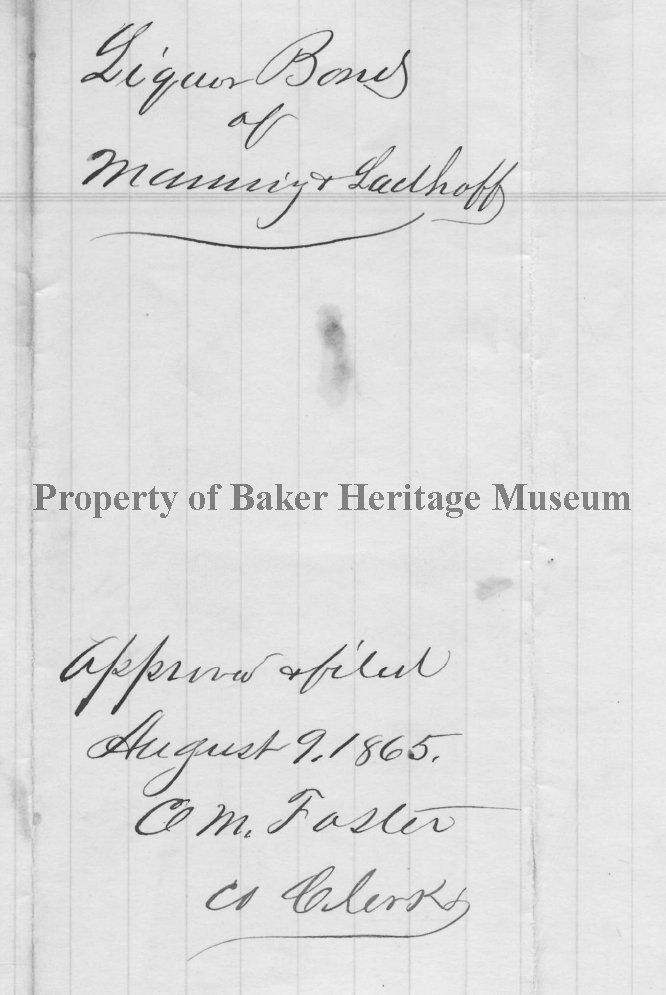 Liquor Bond
of
Manning & Ladhoff
Property of Baker Heritage Museum
Approved & filed
August 9. 1865.
C M. Foster
Co Clerk